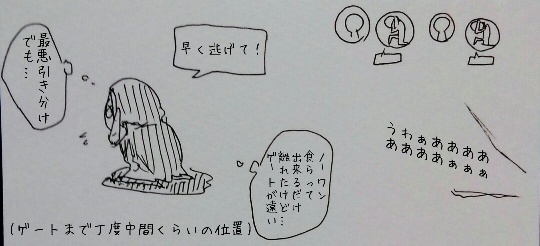 早く逃げて!
最悪引き分け
でも…
ノーワン
食らって
出来るだけ
離れたけど
ゲートが遠い
うわぁあああああ
ああああぁぁぁ
(ゲートまで丁度中間くらいの位置)